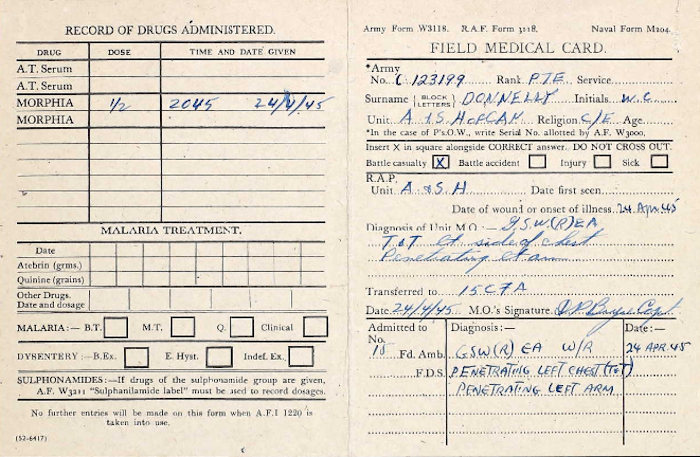 RECORD OF DRUGS ADMINISTERED.
DRUG DOSE TIME AND DATE GIVEN
A.T. Serum
A.T. Serum
MORPHIA ½ 2045 24/4/45
MORPHIA
MALARIA TREATMENT.
Date
Atebrin (grms.)
Quinine (grains)
Other Drugs.
Date and dosage
MALARIA:— B.T. M.T. Q. Clinical
DYSENTERY:—B.Ex. E. Hyst. Indef. Ex.
SULPHONAMIDES:—If drugs of the sulphonamide group are given,
A.F. W3211 "Sulphanilamide label" must be used to record dosages.
No further entries will be made on this form when A.F.I 1220 is
taken into use.
(52-6417)
Army Form W3118. R.A.F. Form 3118. Naval Form M204.
FIELD MEDICAL CARD.
*Army
No. C 123199 Rank PTE Service
Surname {BLOCK LETTERS} DONNELLY Initials W.C.
Unit A & S H of CAN Religion C/E Age
*In the case of P's.O.W., write Serial No. allotted by A.F. W3000.
Insert X in square alongside CORRECT answer. DO NOT CROSS OUT.
Battle casualty X Battle accident Injury Sick
R.A.P.
Unit A & S H Date first seen
Date of wound or onset of illness. 24 Apr 45
Diagnosis of Unit M.O.:— G.S.W.(R) EA
T&T lt side of chest
Penetrating lt arm
Transferred to 15 CFA
Date 24/4/45 M.O.'s Signature Capt
Admitted to Diagnosis:— Date:—
No.
15 Fd. Amb. GSW(R) EA W/R 24 APR 45
F.D.S. PENETRATING LEFT CHEST (T&T)
PENETRATING LEFT ARM